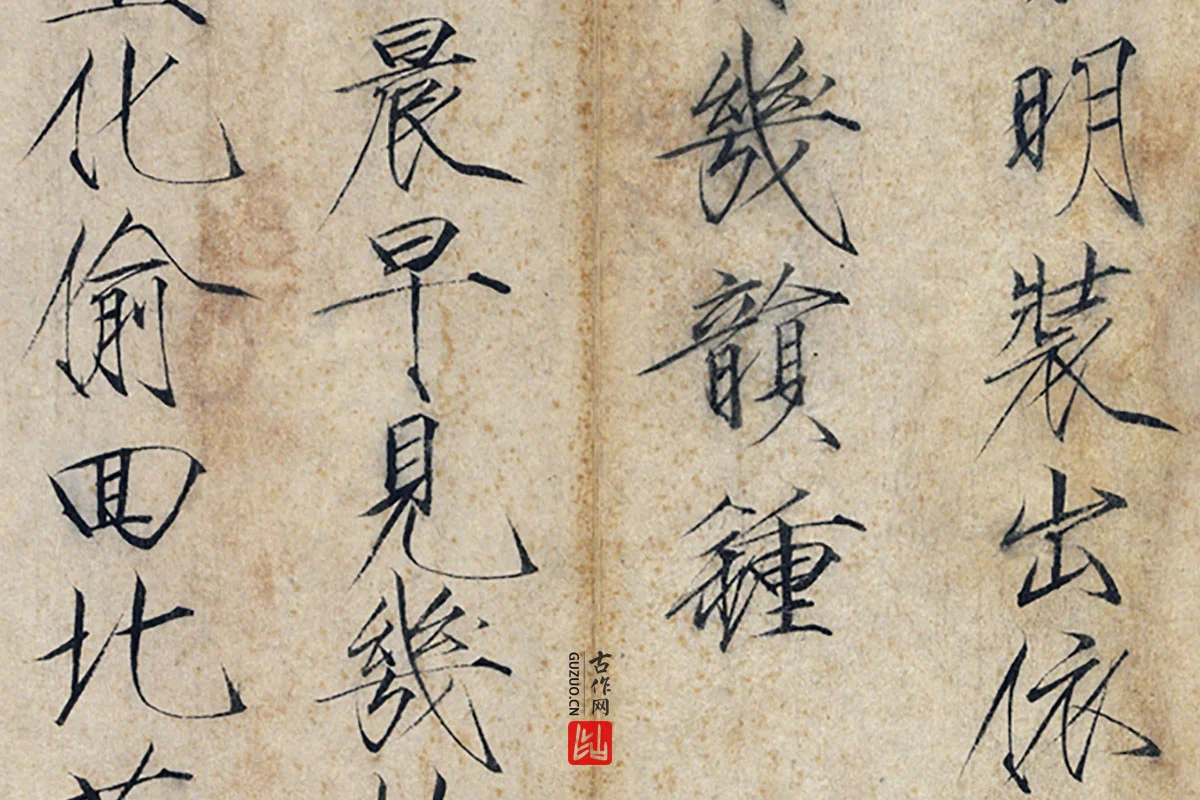 明裝出依
幾韻鍾
晨早見幾
化偷回北
古作网
GUZUO.CN